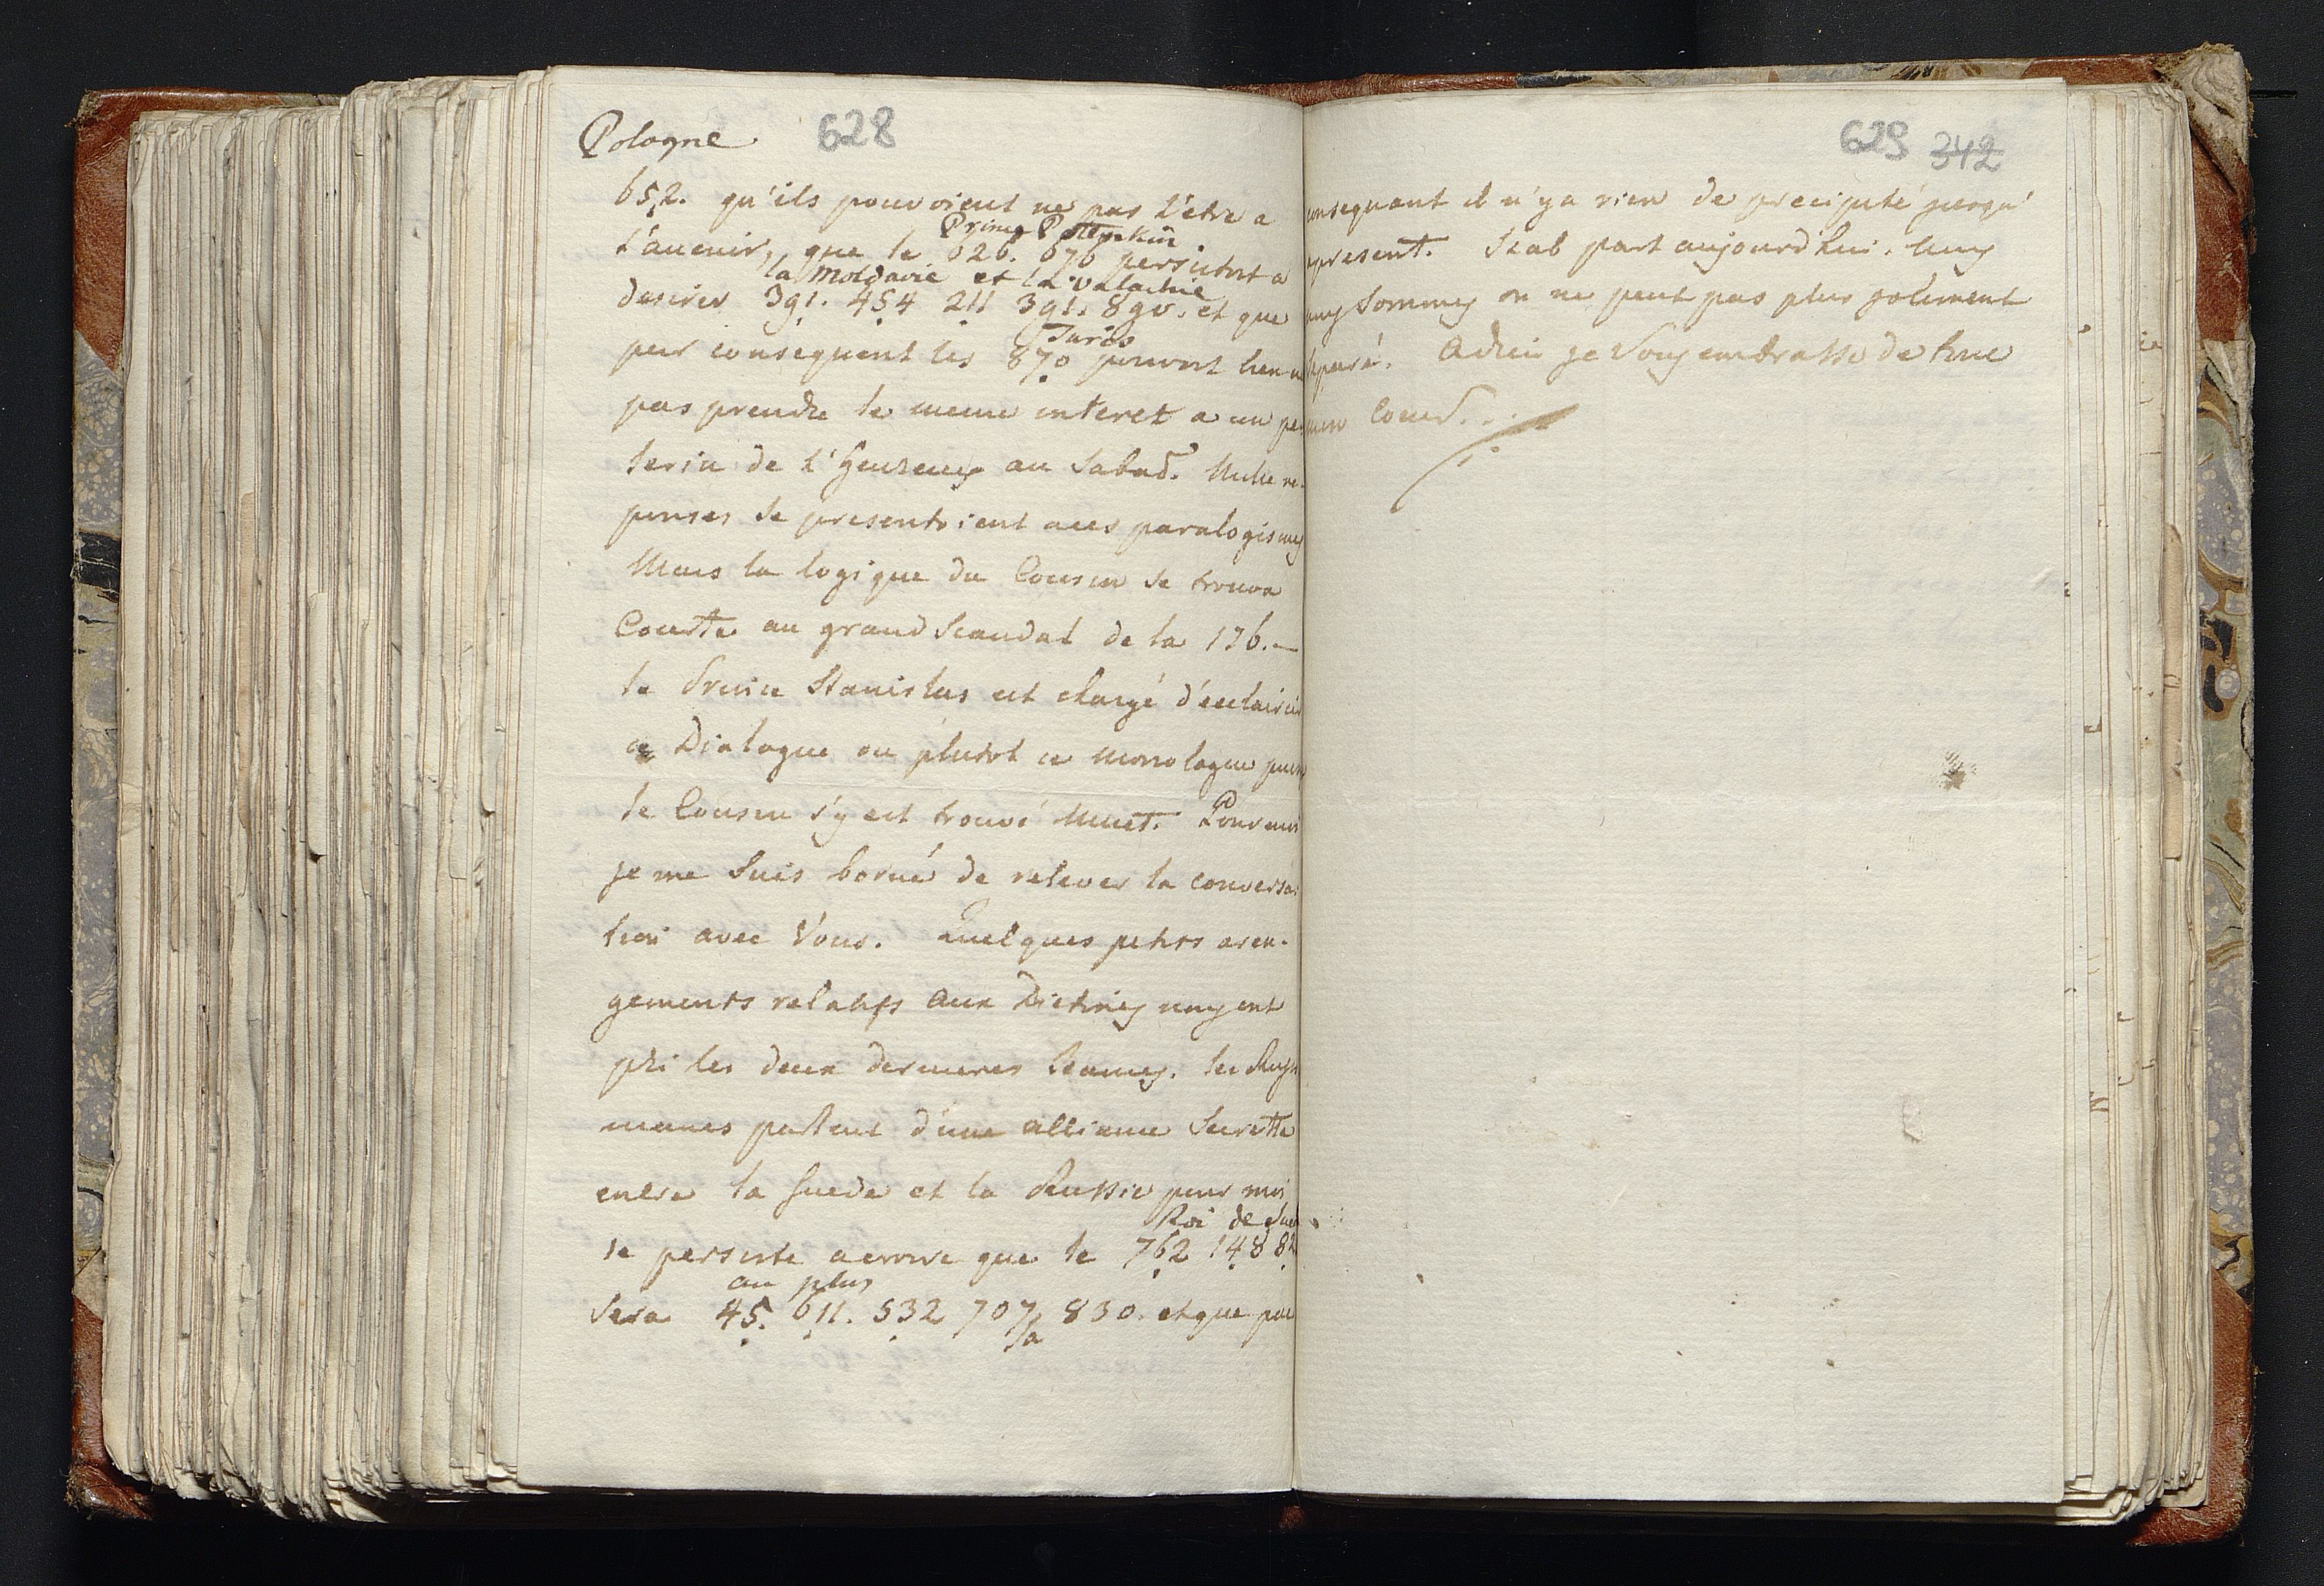 Pologne 628
652. qu'ils pouvoient ne pas l'etre a
Prince Pottemkin
l'avenir, que le 626. 676 persistoit a
la Moldavie et la Valachie
desirer 391. 454 211 391. 890. et que
Turcs
par consequent les 870 pouvoit bien ne
pas prendre le meme interet a un pe
lerin de l'Yeuseuy au Sabad. Mille re-
ponses se presentoient a ces paralogismes
Mais la logique du Cousin se trouva
Courte au grand Scandal de la 176. —
le Prince Stanislas est chargé d'eclaircir
ce Dialogue ou plutot ce Monologue puis
le Cousin s'y est trouvé Muet. Pour moi
je me Suis borné de relever la conversa-
tion avec Vous. Quelques petits aren-
gements relatifs aux Dietines nous ont
pri les deux dernieres Seances. les
parlent d'une alliance Secrette
entre la Suede et la Russie pour moi
Roi de Sue
je persiste a croire que le 762 148 82
au plus
Sera 45. 611. 532 707 830. et que par
a
629 342
onsequant il n'y a rien de precipité jusqu'
apresent. Stab part aujourd'hui. Nous
nous Sommes on ne peut pas plus poliment
separé. Adieu je Vous embrasse de tout
mon Coeur.